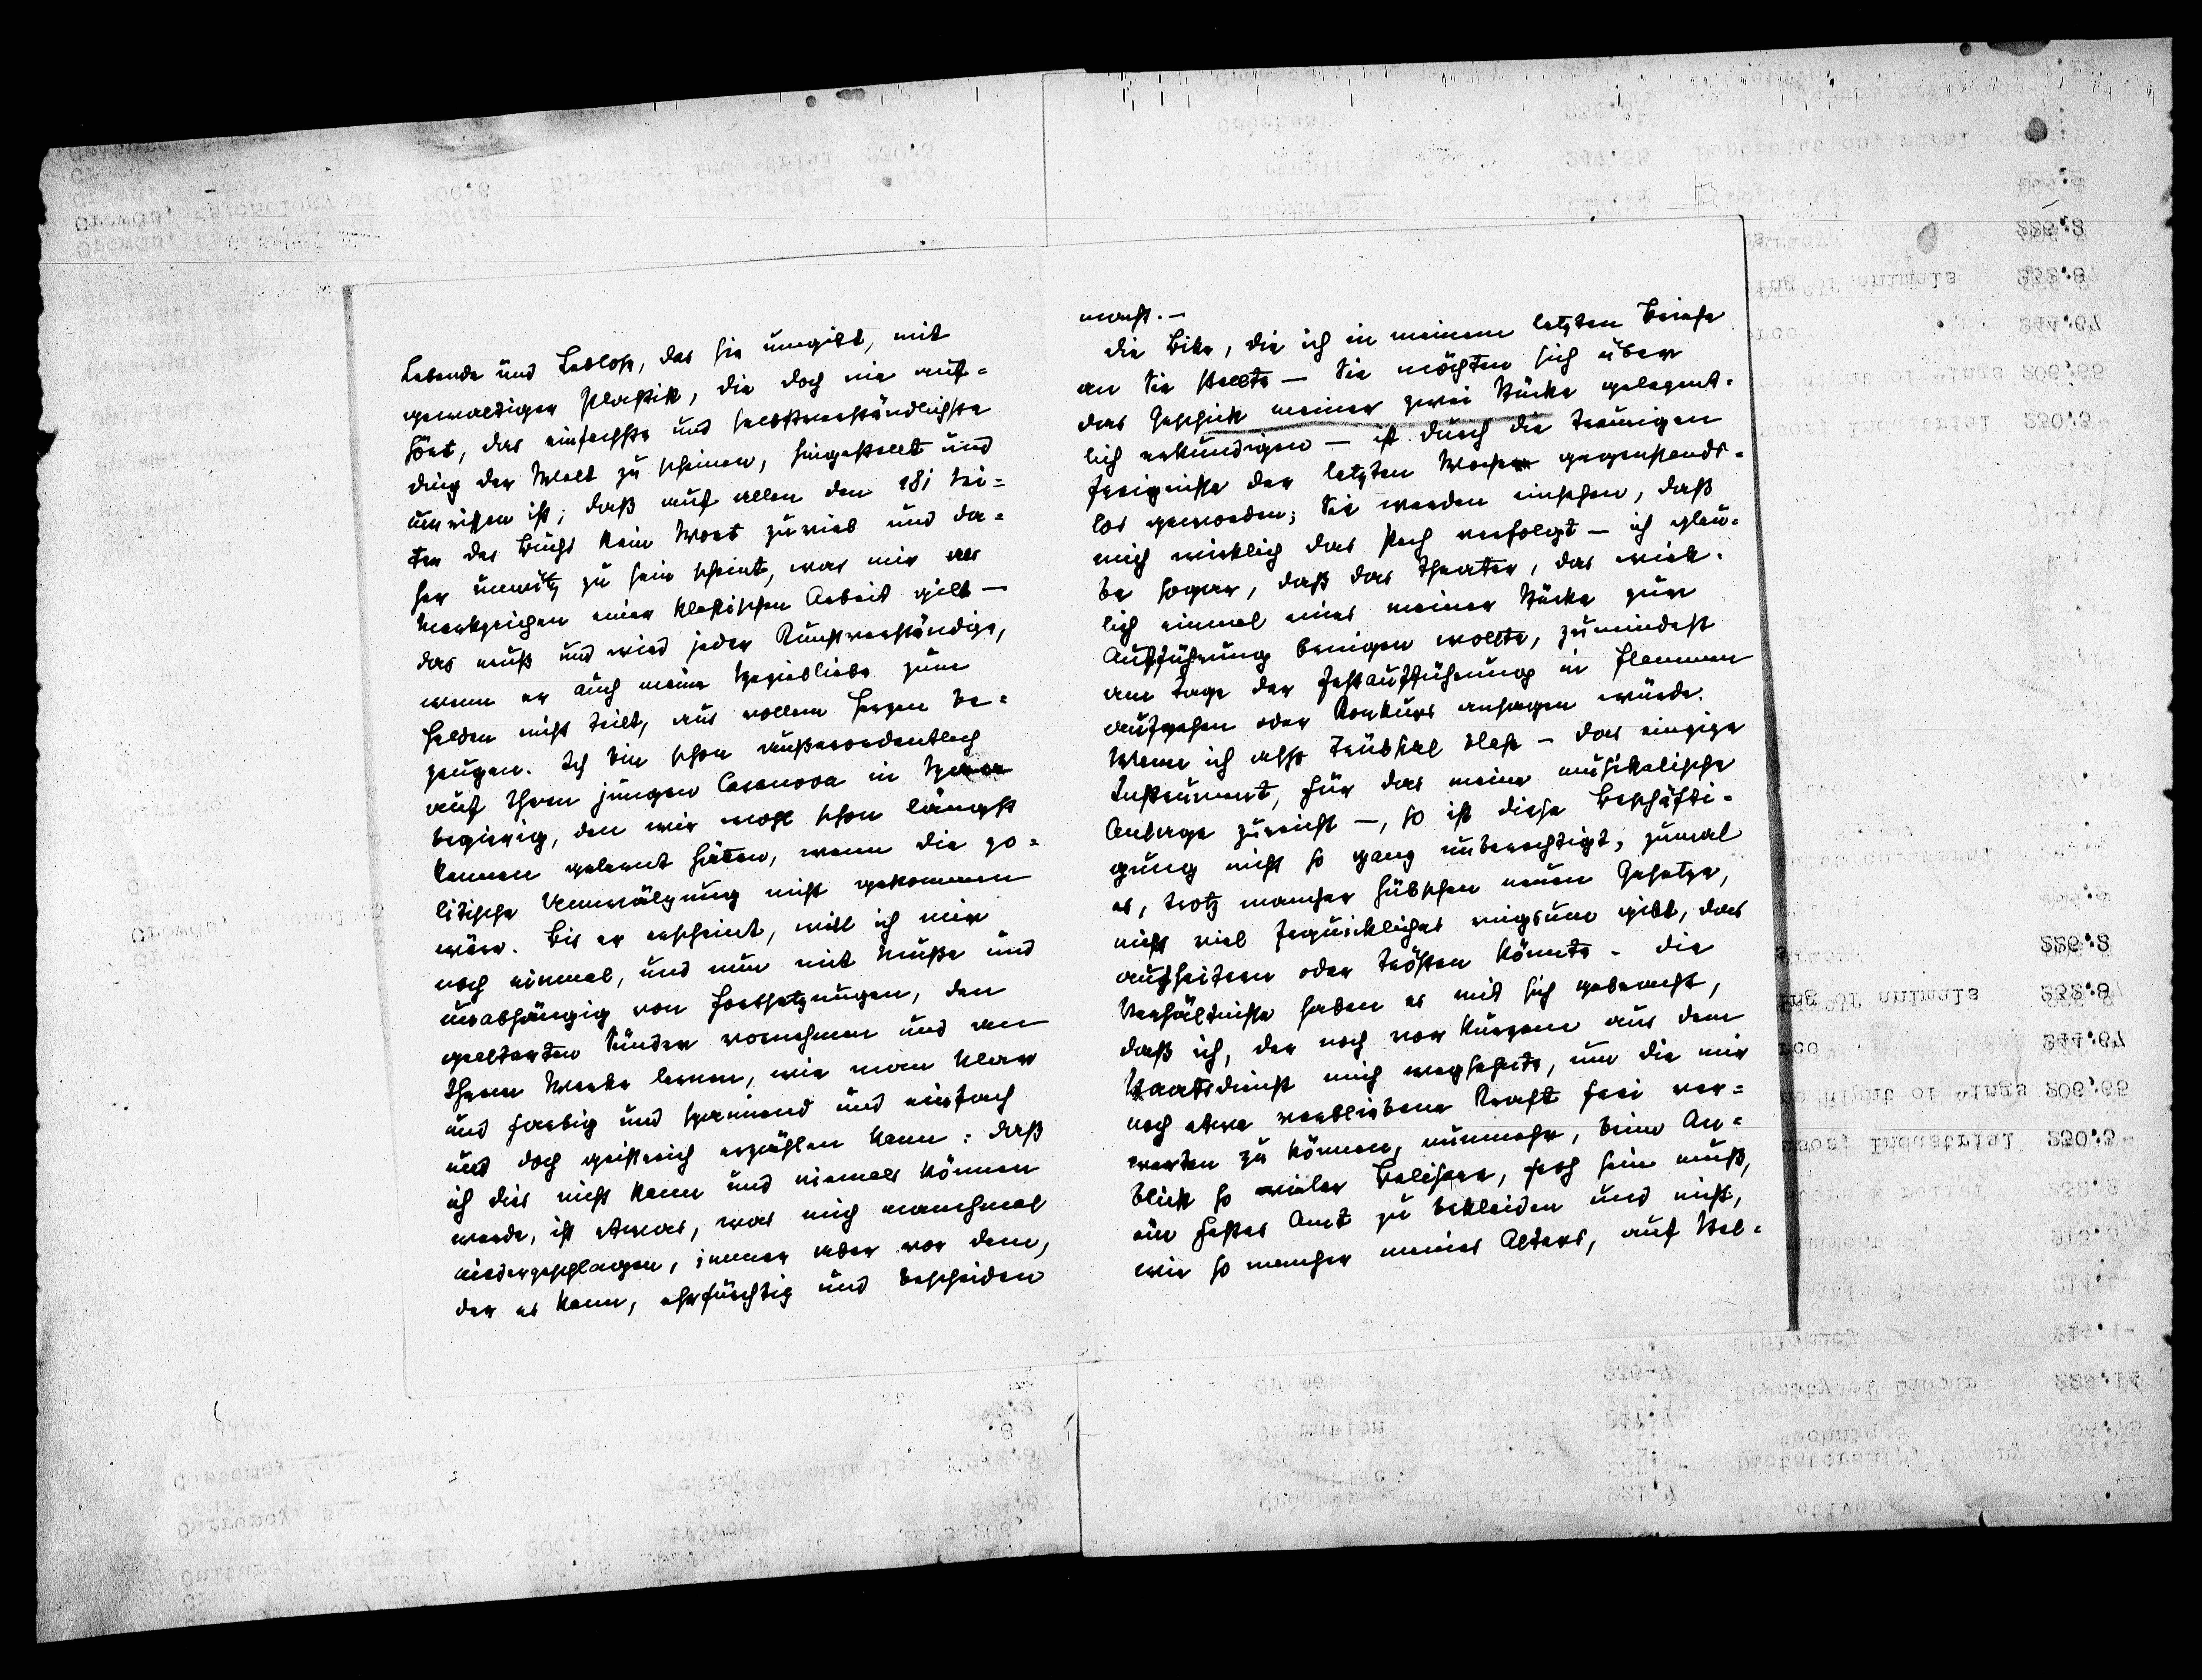 Lebende und Leblose, das sie umgibt, mit
gewaltiger Plastik, die doch nie auf=
hört, das einfachste und selbstverständlichste
Ding der Welt zu scheinen, hingestellt und
umrissen ist; daß auf allen den 181 Sei=
ten des Buchs kein Wort zuviel und da=
her unnütz zu sein scheint, was mir als
Merkzeichen einer klassischen Arbeit gilt —
das muß und wird jeder Kunstverständige,
wenn er auch meine Spezialliebe zum
Helden nicht teilt, aus vollem Herzen be=
zeugen. Ich bin schon außerordentlich
auf Ihren jungen Casanova in Spaa
begierig, den wir wohl schon längst
kennen gelernt hätten, wenn die po=
litische Umwälzung nicht gekommen
wäre. Bis er erscheint, will ich mir
noch einmal, und nun mit Muße und
unabhängig von Fortsetzungen, den
gealterten Sünder vornehmen und an
Ihrem Werke lernen, wie man klar
und farbig und spannend und einfach
und doch geistreich erzählen kann: daß
ich dies nicht kann und niemals können
werde, ist etwas, was mich manchmal
niedergeschlagen, immer aber vor dem,
der es kann, ehrfürchtig und bescheiden
macht. —
Die Bitte, die ich in meinem letzten Briefe
an Sie stellte — Sie möchten sich über
das Geschick meiner zwei Stücke gelegent=
lich erkundigen — ist durch die traurigen
Ereignisse der letzten Woche gegenstands=
los geworden; Sie werden einsehen, daß
mich wirklich das Pech verfolgt — ich glau=
be sogar, daß das Theater, das wirk=
lich einmal eines meiner Stücke zur
Aufführung bringen wollte, zumindest
am Tage der Festaufführung in Flammen
aufgehen oder Konkurs ansagen würde.
Wenn ich also Trübsal blase — das einzige
Instrument, für das meine musikalische
Anlage zureicht —, so ist diese Beschäfti=
gung nicht so ganz unberechtigt, zumal
es, trotz mancher hübschen neuen Gesetze,
nicht viel Erquickliches ringsum gibt, das
aufheitern oder trösten könnte. Die
Verhältnisse haben es mit sich gebracht,
daß ich, der noch vor kurzem aus dem
Staatsdienst mich wegsehnte, um die mir
noch etwa verbliebene Kraft frei ver=
werten zu können, nunmehr, beim An=
blick so vieler Belisare, froh sein muß,
ein festes Amt zu bekleiden und nicht,
wie so mancher meines Alters, auf Stel=